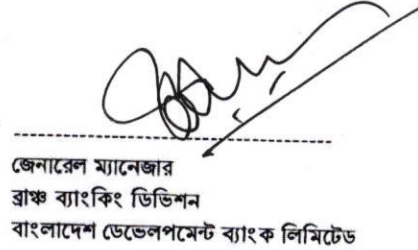 জেনারেল ম্যানেজার
ব্রাঞ্চ ব্যাংকিং ডিভিশন
বাংলাদেশ ডেভেলপমেন্ট ব্যাংক লিমিটেড